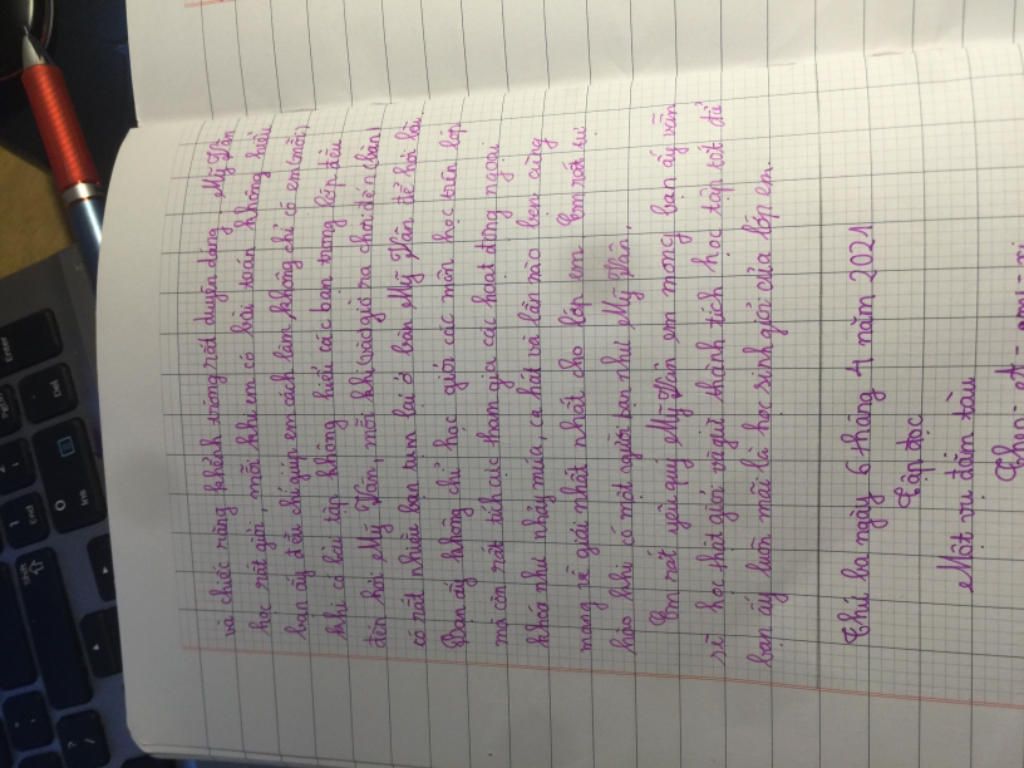 và chiếc răng khểnh trông rất duyên dáng. Mỹ Vân
học rất giỏi, mỗi khi em có bài toán không hiểu
bạn ấy đều chỉ giúp em cách làm không chỉ có em (mỗi)
khi có bài tập không hiểu các bạn trong lớp đều
đến hỏi Mỹ Vân, mỗi khi (vào) giờ ra chơi đến (bàn)
có rất nhiều bạn tụm lại ở bàn Mỹ Vân để hỏi bài.
Bạn ấy không chỉ học giỏi các môn học trên lớp
mà còn rất tích cực tham gia các hoạt động ngoại
khoá như nhảy múa, ca hát và lần nào bạn cũng
mang về giải nhất nhất cho lớp em. Em rất tự
hào khi có một người bạn như Mỹ Vân.
Em rất yêu quý Mỹ Vân em mong bạn ấy vẫn
sẽ học thật giỏi và giữ thành tích học tập tốt để
bạn ấy luôn mãi là học sinh giỏi của lớp em.
Thứ ba ngày 6 tháng 4 năm 2021
Tập đọc
Một vụ đắm tàu
Theo: A-